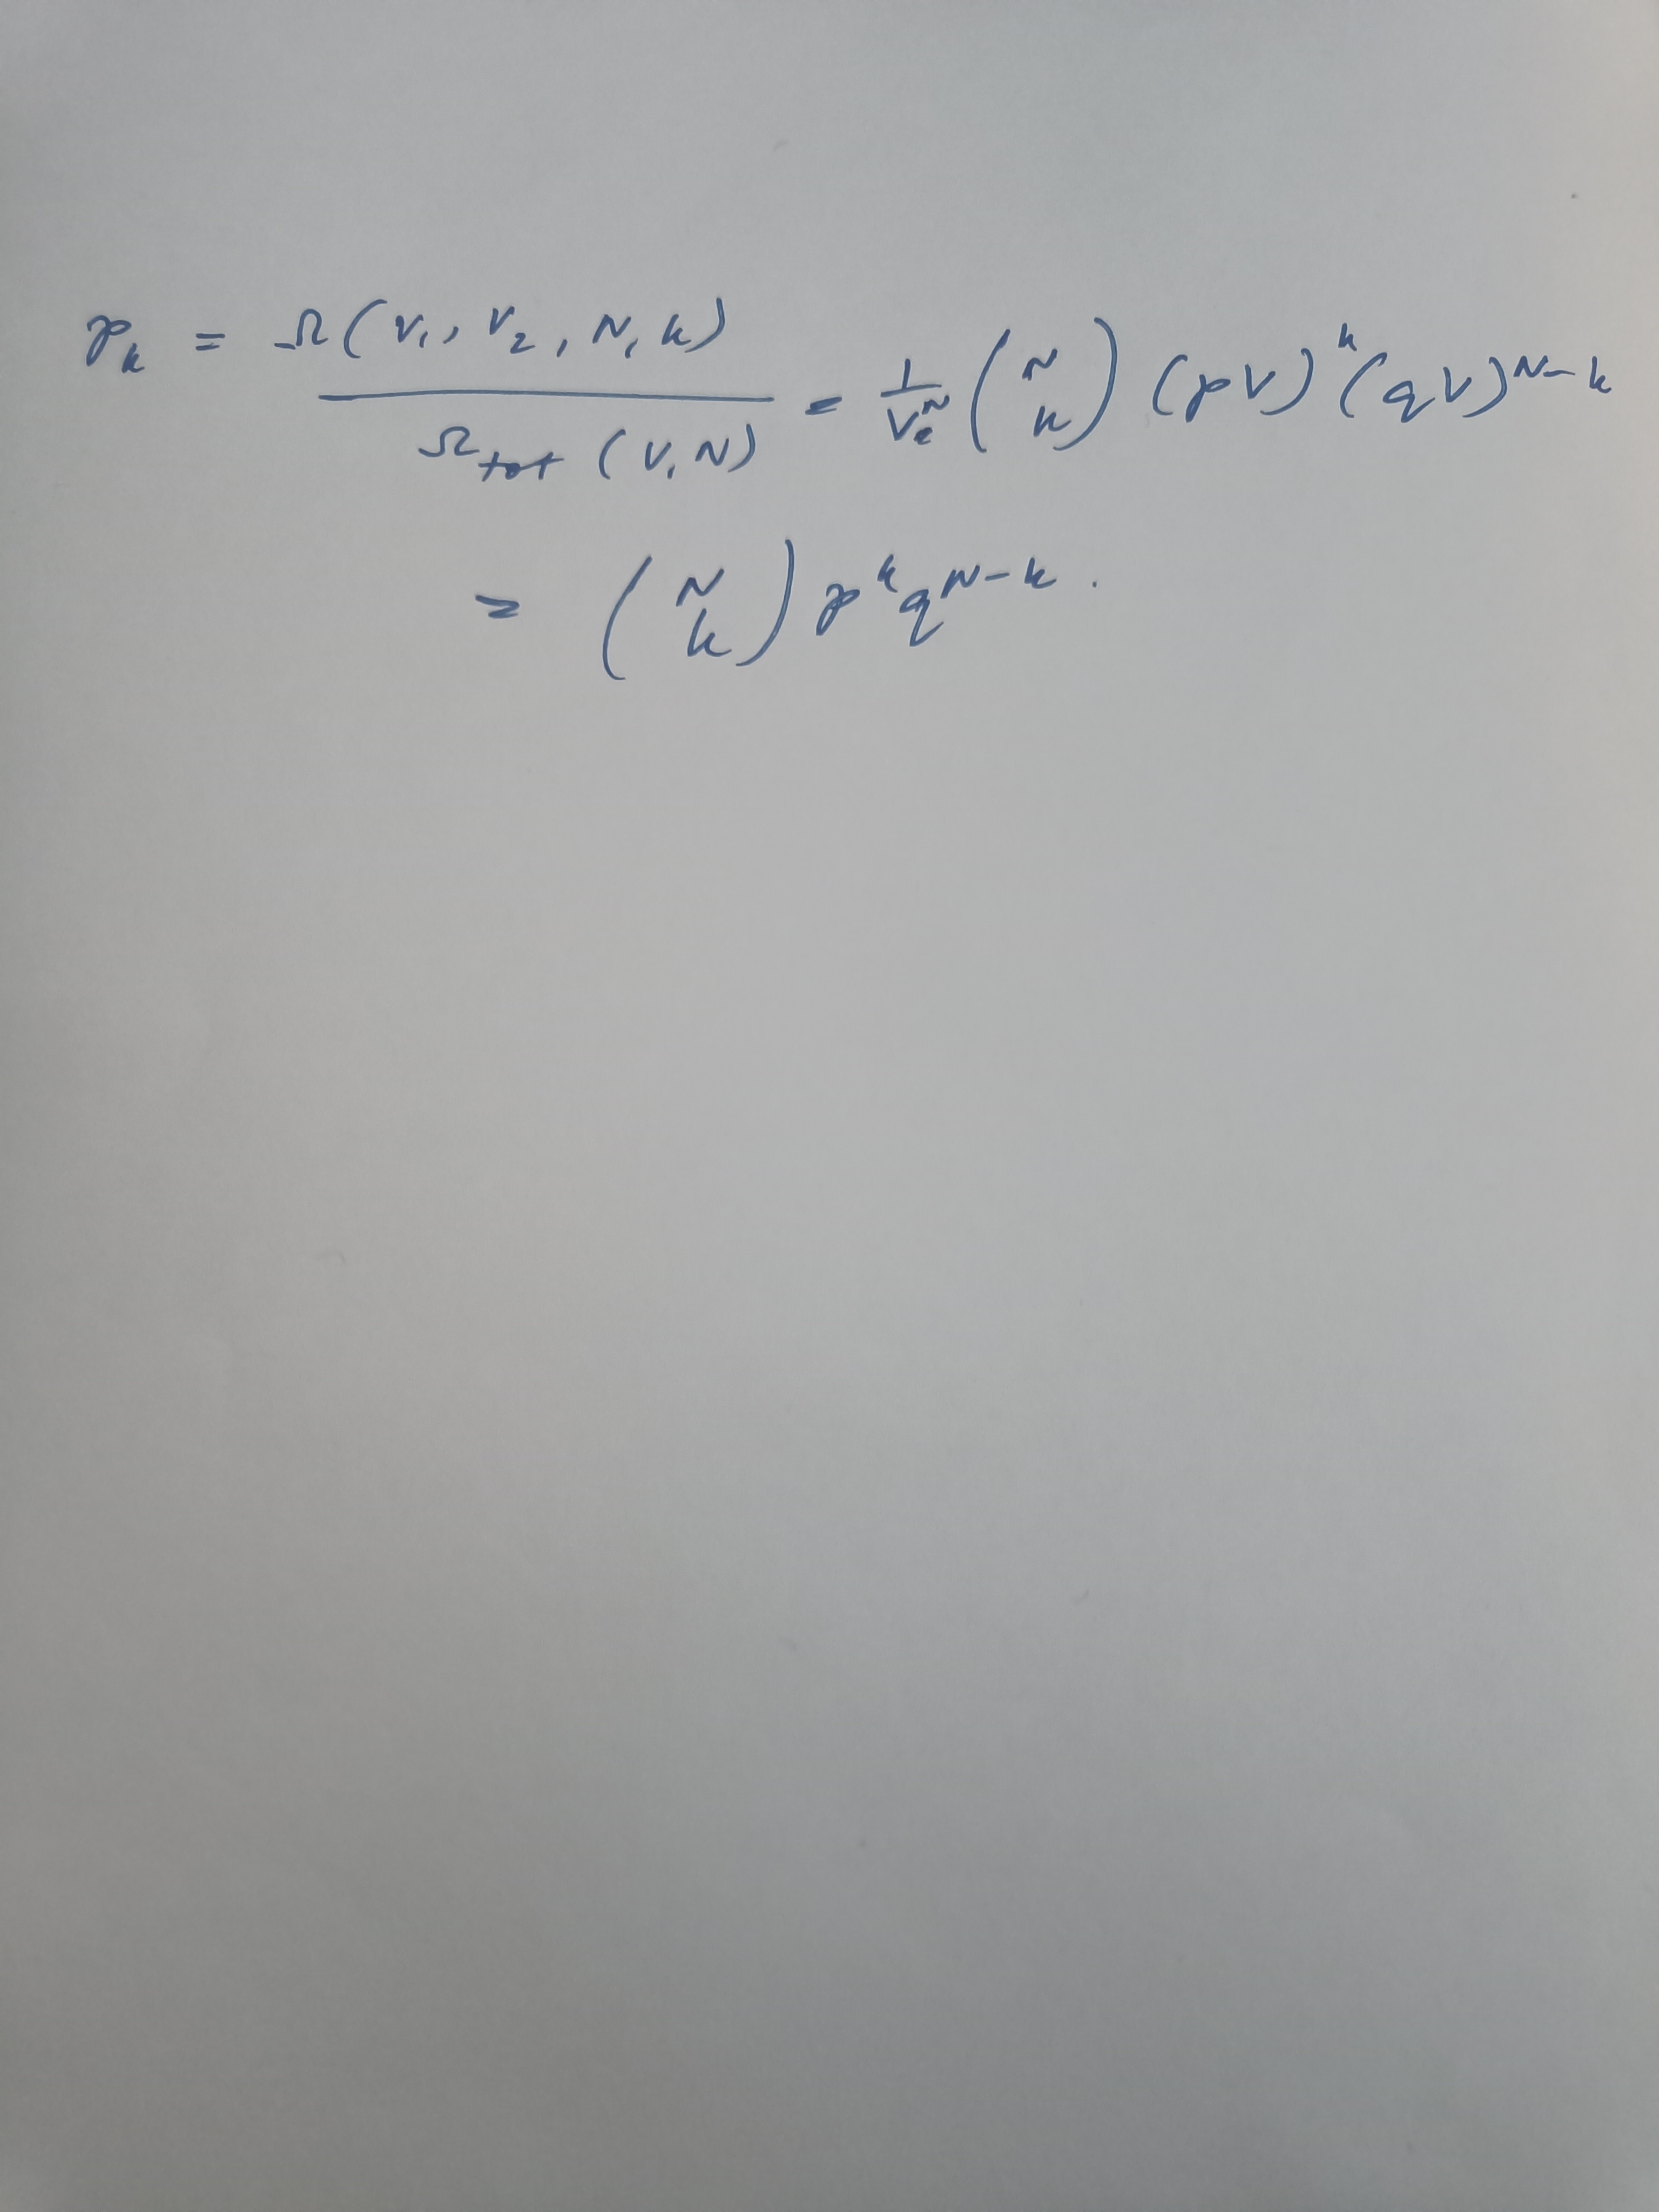 p_k = Ω(V₁, V₂, N, k) / Ω_tot (V, N) = 1/V^N (N k) (pV)^k (qV)^{N-k}
= (N k) p^k q^{N-k} .